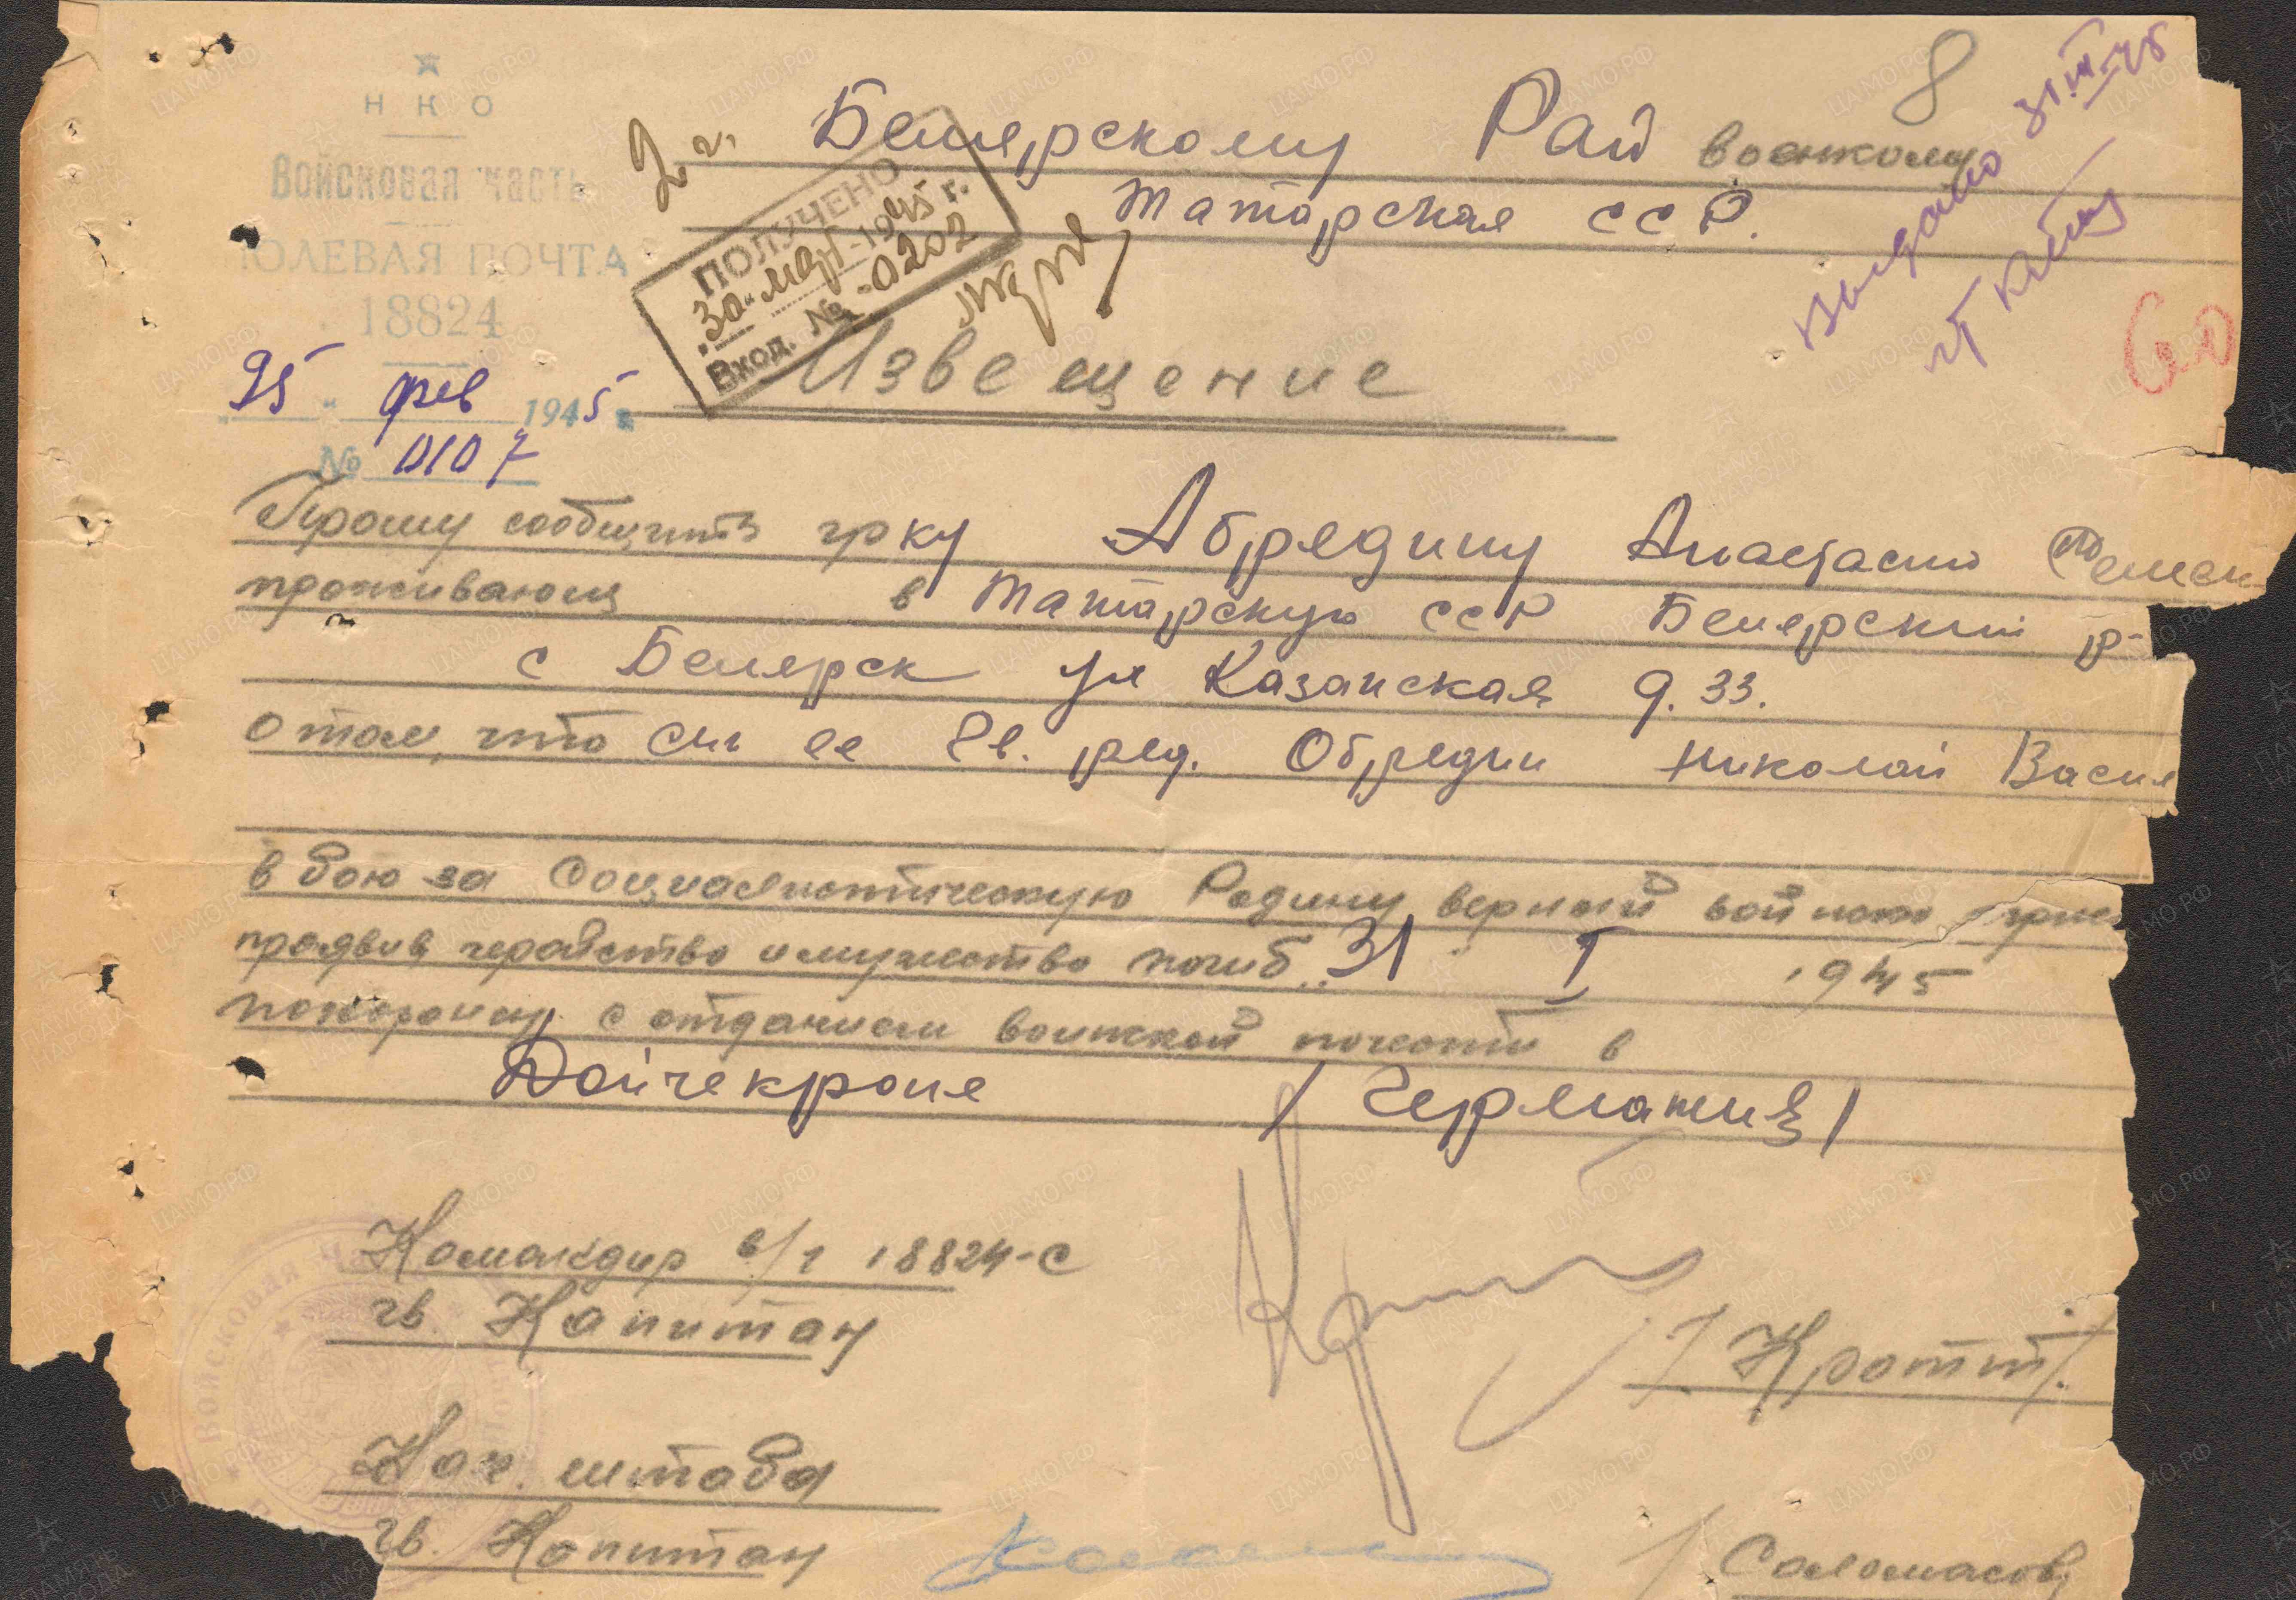 НКО
Войсковая часть
ПОЛЕВАЯ ПОЧТА
18824
25 фев 1945 г.
№ 0107
8
2 г.
Белярскому Рай военкому
Татарская ССР.
ПОЛУЧЕНО
"30" март 1945 г.
Вход. № 0202
Выдано 31 III-45
Извещение
Прошу сообщить гр ку Абрядину Анастасию Семен
проживающ в Татарскую ССР Белярский р-
с Белярск ул Казанская д. 33.
о том, что сын ее Гв. ряд. Обрядин Николай Васил
в бою за Социалистическую Родину верный воинской прис
проявив геройство и мужество погиб "31" I 1945
похоронен с отданием воинской почести в
Дойчекроне / Германия /
Командир в/ч 18824-с
гв. Капитан / Кротт /.
Нач. штаба
гв. Капитан / Соломасов
ВОЙСКОВАЯ ЧА
ЦАМО.РФ
ПАМЯТЬ НАРОДА